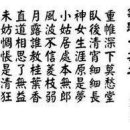 重帷深下莫愁堂
臥後清宵細細長
神女生涯原是夢
小姑居處本無郎
風波不信菱枝弱
月露誰教桂葉香
直道相思了無益
未妨惆悵是清狂